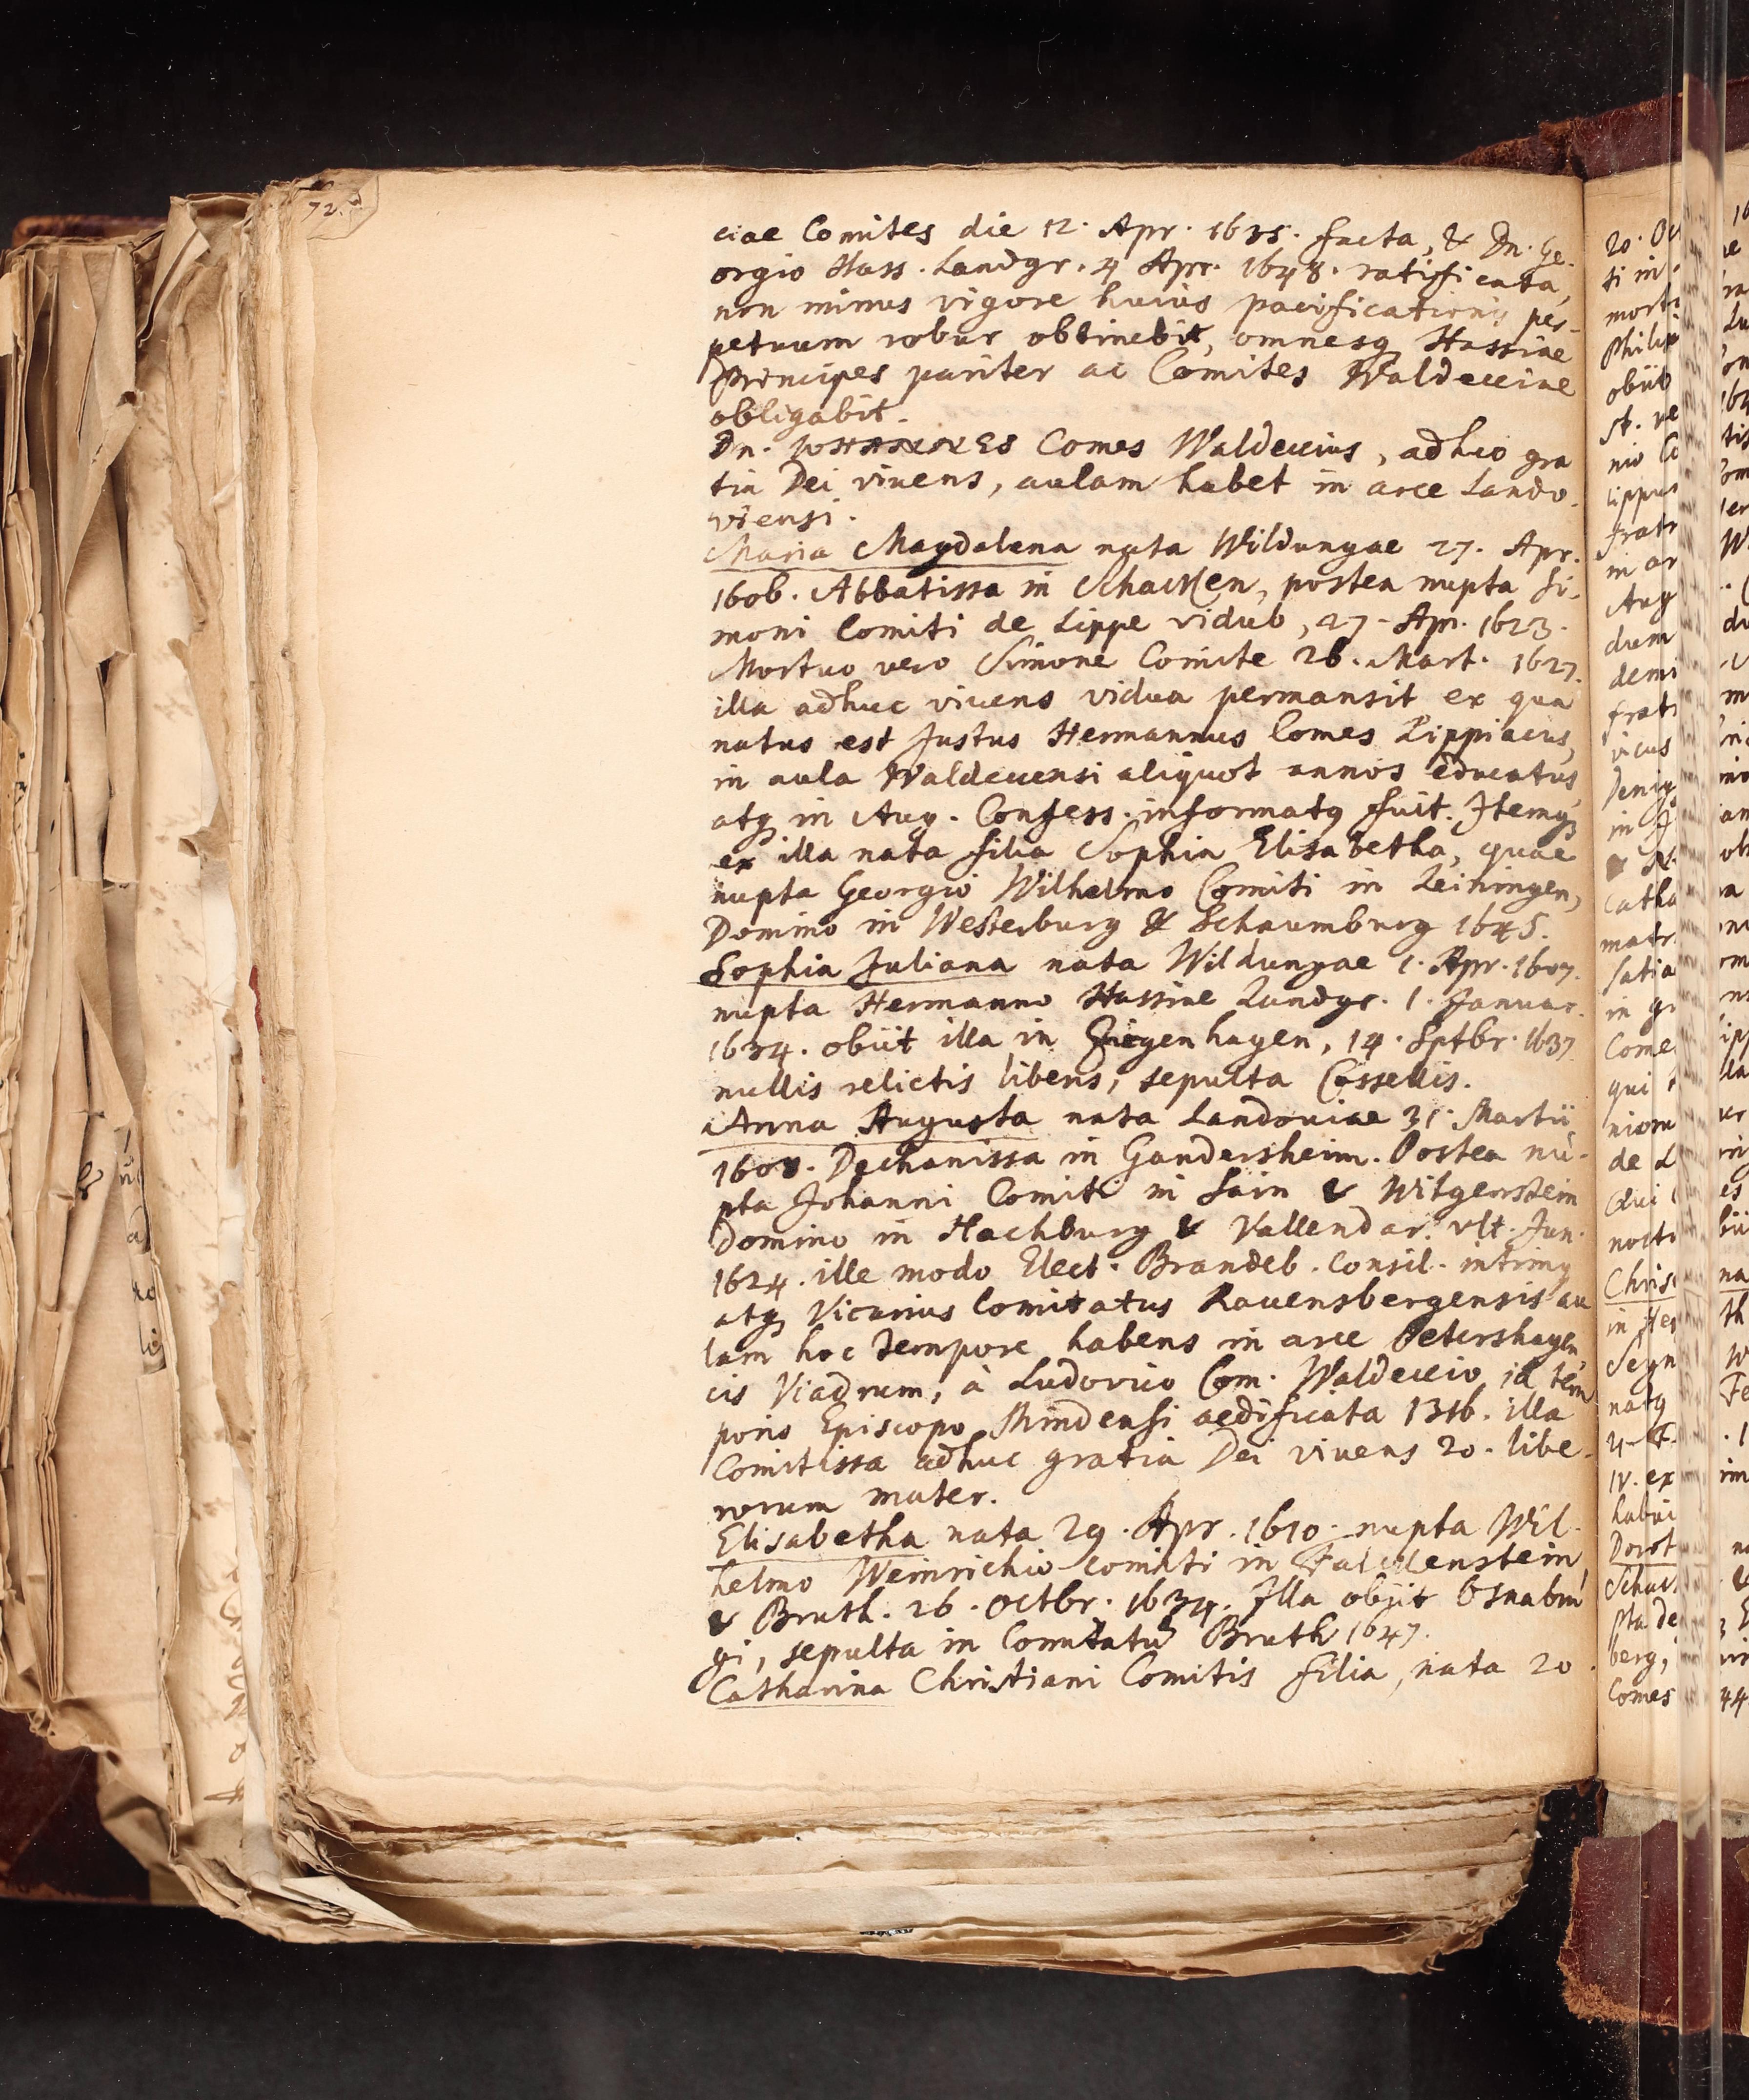 72.
ciae Comites die 12. Apr. 1635. facta, & Dn. Ge-
orgio Hass. Landgr. 4 Apr. 1648. ratificata,
non minus vigore huius pacificationis per-
petuum robur obtinebit, omnesq Hassiae
Principes pariter ac Comites Waldecciae
obligabit.
Dn. JOHANNES Comes Waldeccius, adhuc gra
tia Dei vivens, aulam habet in arce Lando-
viensi.
Maria Magdalena nata Wildungae 27. Apr.
1606. Abbatissa in Schacken, postea nupta Si-
moni Comiti de Lippe viduo, 27 - Apr. 1623.
Mortuo vero Simone Comite 26. Mart. 1627.
illa adhuc vivens vidua permansit ex qua
natus est Justus Hermannus Comes Lippiacus,
in aula Waldeccensi aliquot annos educatus
atq in Aug. Confess. informatq fuit. Itemq
ex illa nata filia Sophia Elisabetha, quae
nupta Georgio Wilhelmo Comiti in Leiningen,
Domino in Westerburg & Schaumburg 1645.
Sophia Juliana nata Wildungae 1. Apr. 1607.
nupta Hermanno Hassiae Landgr. 1. Januar.
1634. obiit illa in Ziegenhagen, 14. Sptbr. 1637.
nullis relictis liberis, sepulta Cassellis.
Anna Augusta nata Landoviae 31. Martii
1608. Dechanissa in Gandersheim. Postea nu-
pta Johanni Comiti in Sain & Witgenstein
Domino in Hachburg & Vallendar. vlt. Jun.
1624. ille modo Elect. Brandeb. Consil. intimq
atq Vicarius Comitatus Ravensbergensis au
lam hoc tempore habens in arce Petershagen,
cis Viadrum, à Ludovico Com. Waldeccio id tem
poris Episcopo Mindensi aedificata 1316. illa
Comitissa adhuc gratia Dei vivens 20. libe-
rorum mater.
Elisabetha nata 29. Apr. 1610. nupta Wil-
helmo Weinrichio Comiti in Falckenstein,
& Bruth. 26. Octbr. 1634. Illa obijt Osnabru
gi, sepulta in Comitatu Bruth 1647.
Catharina Christiani Comitis filia, nata 20.